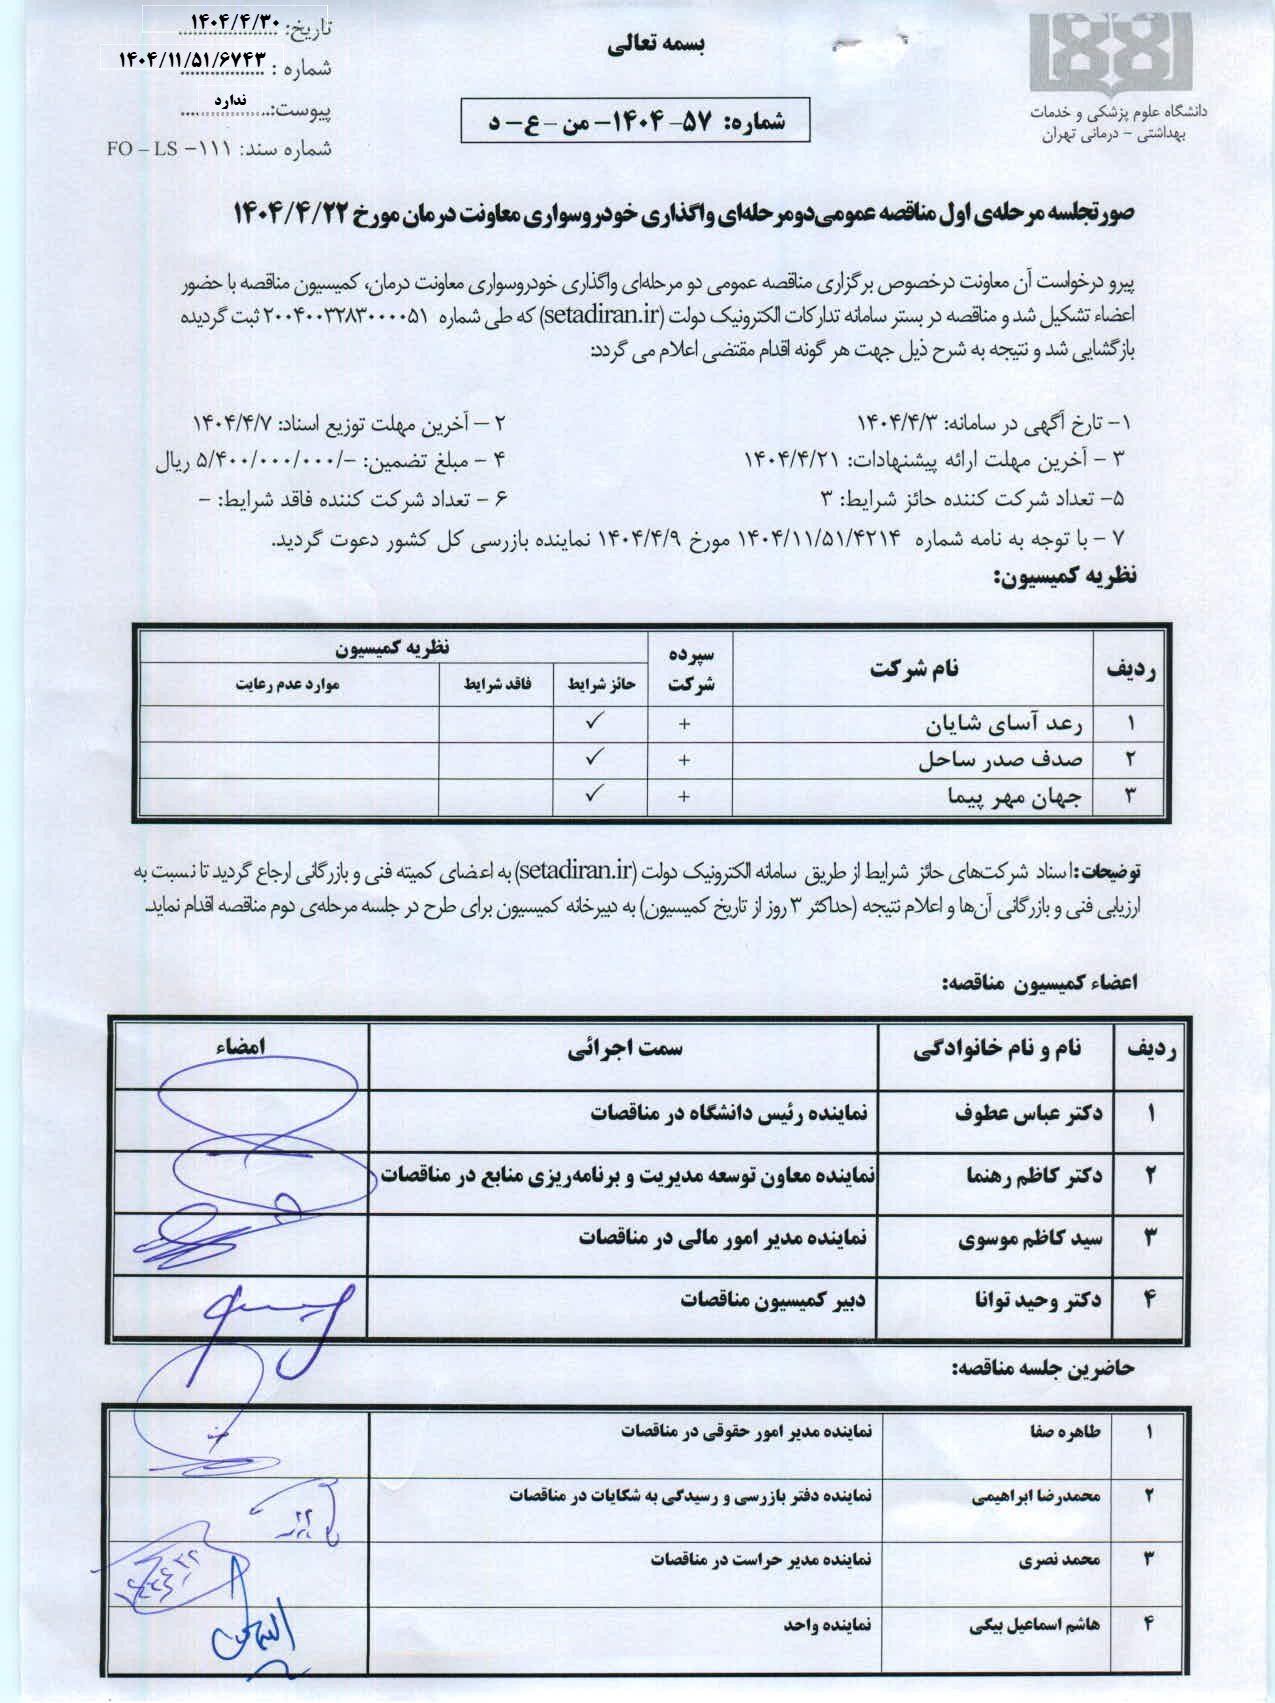 بسمه تعالی
تاریخ: ۱۴۰۴/۴/۳۰
شماره : ۱۴۰۴/۱۱/۵۱/۶۷۴۳
پیوست: ندارد
شماره سند: FO – LS –۱۱۱
دانشگاه علوم پزشکی و خدمات
بهداشتی – درمانی تهران
شماره: ۵۷– ۱۴۰۴– من – ع– د
صورتجلسه مرحله‌ی اول مناقصه عمومی‌دومرحله‌ای واگذاری خودروسواری معاونت درمان مورخ ۱۴۰۴/۴/۲۲
پیرو درخواست آن معاونت درخصوص برگزاری مناقصه عمومی دو مرحله‌ای واگذاری خودروسواری معاونت درمان، کمیسیون مناقصه با حضور
اعضاء تشکیل شد و مناقصه در بستر سامانه تدارکات الکترونیک دولت (setadiran.ir) که طی شماره ۲۰۰۴۰۰۳۲۸۳۰۰۰۰۵۱ ثبت گردیده
بازگشایی شد و نتیجه به شرح ذیل جهت هر گونه اقدام مقتضی اعلام می گردد:
۱– تارخ آگهی در سامانه: ۱۴۰۴/۴/۳ ۲ – آخرین مهلت توزیع اسناد: ۱۴۰۴/۴/۷
۳ – آخرین مهلت ارائه پیشنهادات: ۱۴۰۴/۴/۲۱ ۴ – مبلغ تضمین: –/۵/۴۰۰/۰۰۰/۰۰۰ ریال
۵– تعداد شرکت کننده حائز شرایط: ۳ ۶ – تعداد شرکت کننده فاقد شرایط: –
۷ – با توجه به نامه شماره ۱۴۰۴/۱۱/۵۱/۴۲۱۴ مورخ ۱۴۰۴/۴/۹ نماینده بازرسی کل کشور دعوت گردید.
نظریه کمیسیون:
ردیف نام شرکت سپرده شرکت نظریه کمیسیون
حائز شرایط فاقد شرایط موارد عدم رعایت
۱ رعد آسای شایان + ✓
۲ صدف صدر ساحل + ✓
۳ جهان مهر پیما + ✓
توضیحات: اسناد شرکت‌های حائز شرایط از طریق سامانه الکترونیک دولت (setadiran.ir) به اعضای کمیته فنی و بازرگانی ارجاع گردید تا نسبت به
ارزیابی فنی و بازرگانی آن‌ها و اعلام نتیجه (حداکثر ۳ روز از تاریخ کمیسیون) به دبیرخانه کمیسیون برای طرح در جلسه مرحله‌ی دوم مناقصه اقدام نماید.
اعضاء کمیسیون مناقصه:
ردیف نام و نام خانوادگی سمت اجرائی امضاء
۱ دکتر عباس عطوف نماینده رئیس دانشگاه در مناقصات
۲ دکتر کاظم رهنما نماینده معاون توسعه مدیریت و برنامه‌ریزی منابع در مناقصات
۳ سید کاظم موسوی نماینده مدیر امور مالی در مناقصات
۴ دکتر وحید توانا دبیر کمیسیون مناقصات
حاضرین جلسه مناقصه:
۱ طاهره صفا نماینده مدیر امور حقوقی در مناقصات
۲ محمدرضا ابراهیمی نماینده دفتر بازرسی و رسیدگی به شکایات در مناقصات
۳ محمد نصری نماینده مدیر حراست در مناقصات
۴ هاشم اسماعیل بیگی نماینده واحد